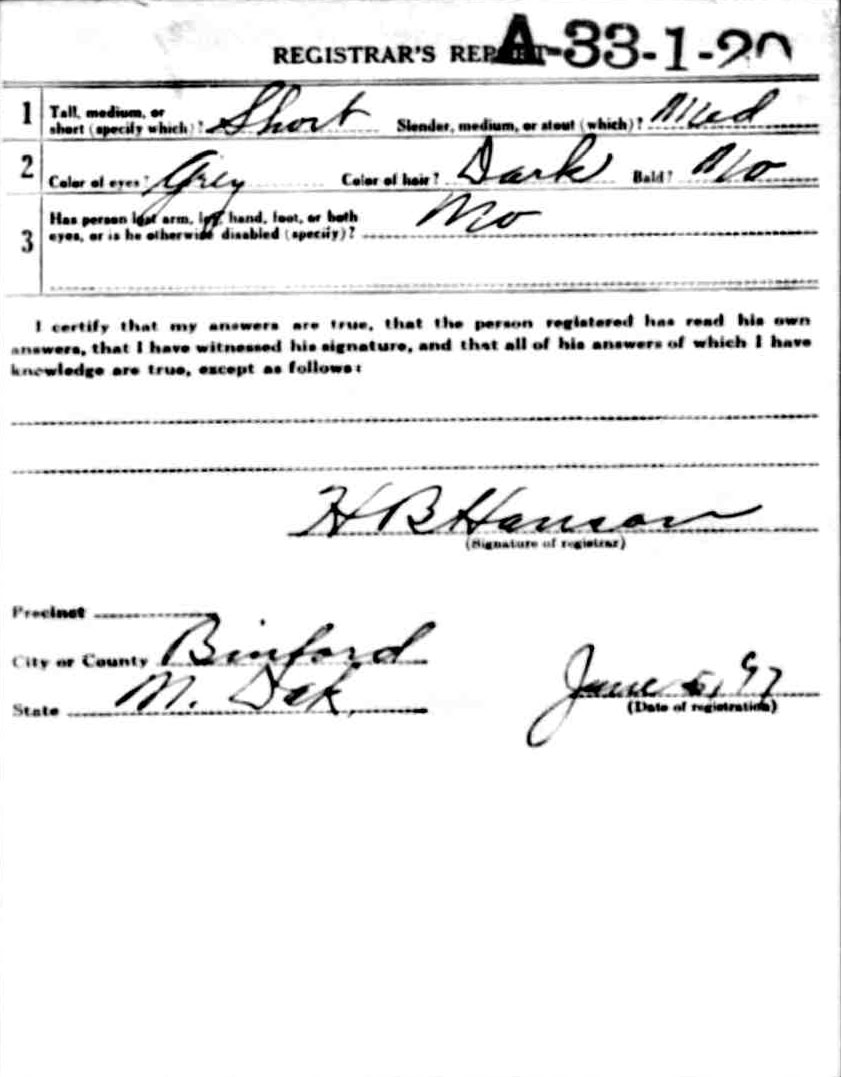 REGISTRAR'S REPORT A-33-1-20
1 Tall, medium, or
short (specify which)? Short Slender, medium, or stout (which)? Med
2 Color of eyes? Grey Color of hair? Dark Bald? No
Has person lost arm, leg, hand, foot, or both
3 eyes, or is he otherwise disabled (specify)? No
I certify that my answers are true, that the person registered has read his own
answers, that I have witnessed his signature, and that all of his answers of which I have
knowledge are true, except as follows:
H B Hanson
(Signature of registrar)
Precinct
City or County Binford
State N. Dak. June 5, 
(Date of registration)